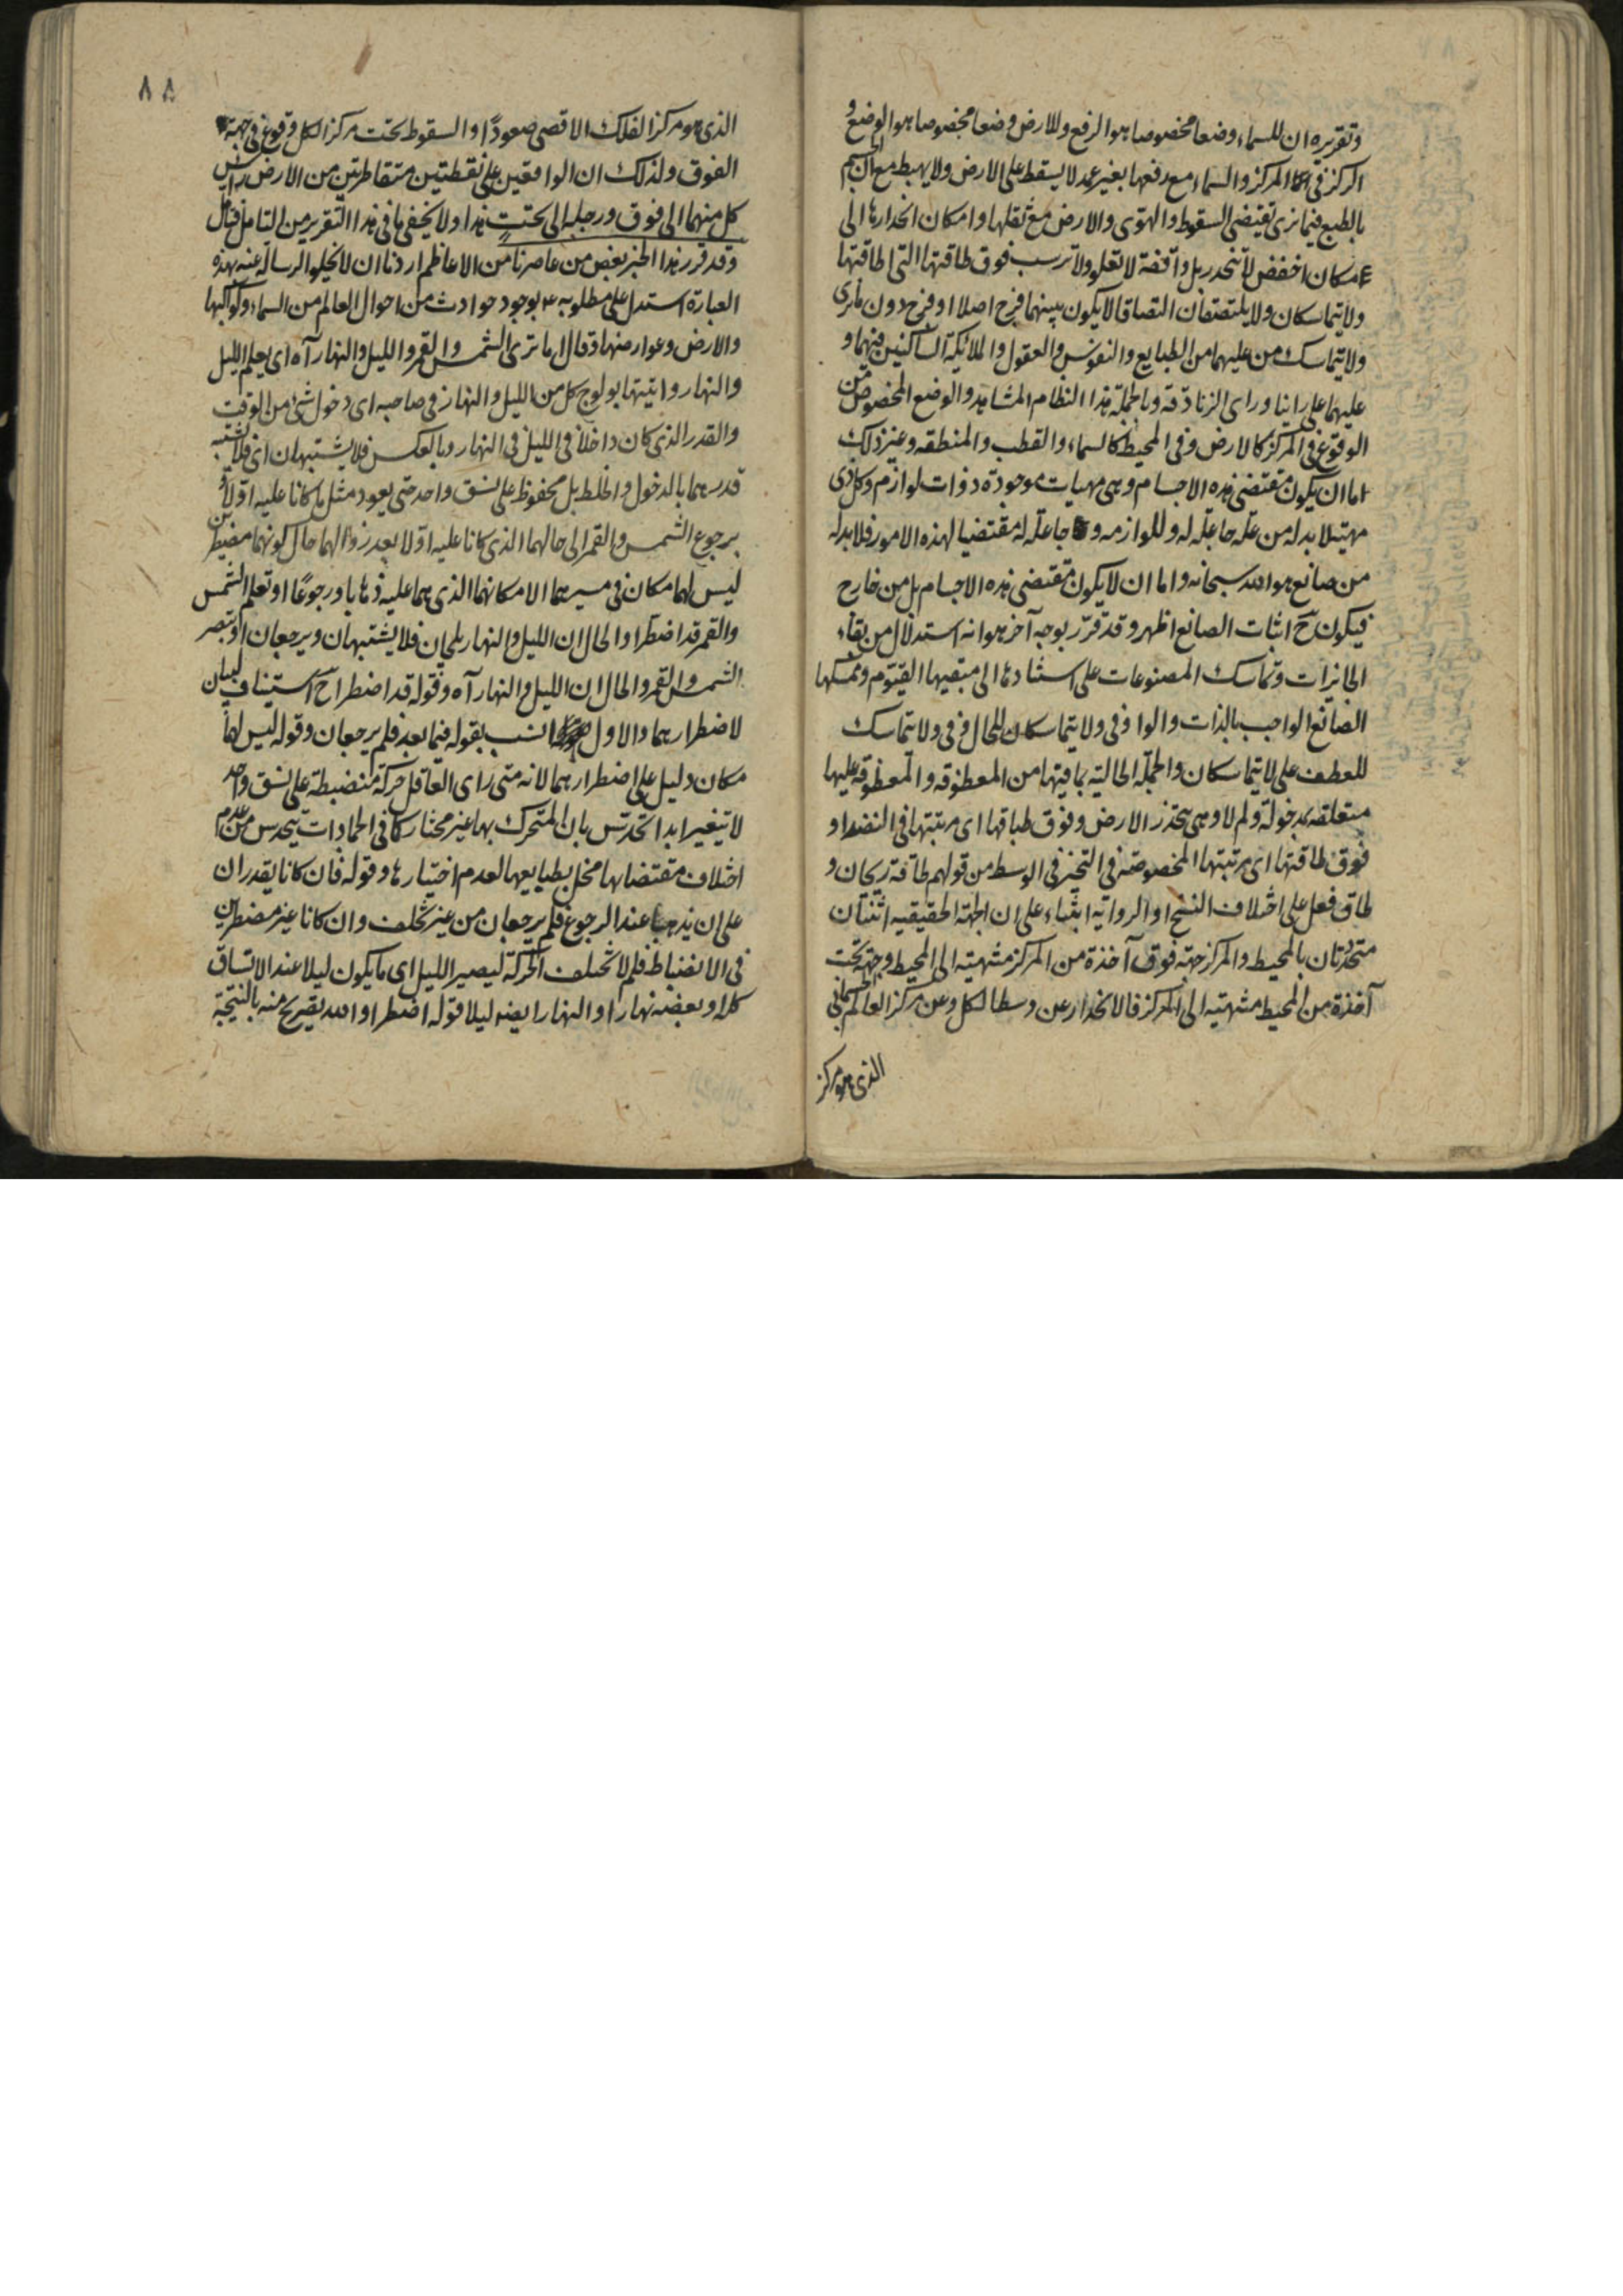 وتقريره ان للسماء وضعا مخصوصا هو الرفع وللارض وضعا مخصوصا هو الوضع و
الركز في المركز والسماء مع رفعها بغير عمد لا يسقط على الارض ولا يهبط مع ان الجسم
بالطبع فيما نرى تقيتضى السقوط والهوى والارض مع ثقلها وامكان انحدارها الى
مكان اخفض لا تنحدر بل واقفة لا تعلو ولا ترسب فوق طاقتها التى طاقتها
ولا يتماسكان ولا يلتصقان التصاقا لا يكون بينهما فرج اصلا او فرج دون ما نرى
ولا يتماسك من عليهما من الطبايع والنفوس والعقول والملائكة الساكنين فيهما و
عليهما على راينا وراى الزنادقة وبالجملة هذا النظام المشاهد والوضع المخصوص من
الوقوع في المركز كالارض وفى المحيط كالسماء والقطب والمنطقه وغير ذلك
اما ان يكون مقتضى هذه الاجسام وهى مهيات موجودة ذوات لوازم وكل ذى
مهية لا بد له من علة جاعلة له وللوازمه وجاعلة له مقتضيا لهذه الامور فلا بد له
من صانع هو الله سبحانه واما ان لا يكون مقتضى هذه الاجسام بل من خارج
فيكون ح اثبات الصانع اظهر وقد قرر بوجه آخر هو انه استدلال من بقاء
الجائزات وتماسك المصنوعات على استنادها الى مبقيها القيوم وممسكها
الصانع الواجب بالذات والواو فى ولا يتماسكان للحال و فى ولا يتماسك
للعطف على لا يتماسكان والجملة الحالية بما فيها من المعطوفه والمعطوفه عليها
متعلقه بمدخولة ولم لا وهى تنحدر الارض وفوق طباقها اى مرتبتها فى النضد او
فوق طاقتها اى مرتبتها المخصوصة فى التحيز فى الوسط من قولهم طاقة ريحان و
طاق فعل على اختلاف النسخ او الرواية ابتناء على ان الجهة الحقيقيه اثنتان
متحددتان بالمحيط والمركز جهة فوق آخذة من المركز منتهيته الى المحيط وجهة تحت
آخذة من المحيط منتهيته الى المركز فالانحدار عن وسط الكل وعن مركز العالم الجسمانى
الذى هو مركز
٨٨
الذى هو مركز الفلك الاقصى صعودًا والسقوط تحت مركز الكل وقوع فى جهة
الفوق ولذلك ان الواقفين على نقطتين متقاطرتين من الارض راس
كل منهما الى فوق ورجله الى تحت هذا ولا يخفى ما فى هذا التقرير من التامل فتامل
وقد قرر هذا الخبر بعض من عاصرنا من الاعاظم اردنا ان لا نخلو الرسالة عنه بهذه
العبارة استدل على مطلوبه ع بوجود حوادث من احوال العالم من السماء وكواكبها
والارض وعوارضها وقال اما ترى الشمس والقمر والليل والنهار آه اى يعلم الليل
والنهار واتيتها بولوج كل من الليل والنهار فى صاحبه اى دخول شئ من الوقت
والقدر الذى كان داخلا فى الليل فى النهار وبالعكس فلا يشتبهان اى فلا يشتبه
قدرهما بالدخول والخلط بل محفوظ على نسق واحد حتى يعود مثل ما كانا عليه اولا و
برجوع الشمس والقمر الى حالهما الذى كانا عليه اولا بعد زوالهما حال كونهما مضطرين
ليس لهما مكان فى مسيرهما الا مكانهما الذى هما عليه ذهابا ورجوعًا او تعلم الشمس
والقمر قد اضطرا والحال ان الليل والنهار يلجان فلا يشتبهان ويرجعان او تبصر
الشمس والقمر والحال ان الليل والنهار آه وقوله قد اضطرا ح استيناف لبيان
لاضطرارهما والاول انسب بقوله فيما بعد فلم يرجعان وقوله ليس لهما
مكان دليل على اضطرارهما لانه متى راى العاقل حركة منضبطة على نسق واحد
لا تتغير ابدا تحدس بان المتحرك بها غير مختار كما فى الجمادات يتحدس من عدم
اختلاف مقتضياتها بطبايعها لعدم اختيارها وقوله فان كانا يقدران
على ان يذهبا عند الرجوع فلم يرجعان من غير تخلف وان كانا غير مضطرين
فى الانضباط فلم لا تختلف الحركة ليصير الليل اى ما يكون ليلا عند الاتساق
كله او بعضه نهارا او النهار ايضه ليلا قوله اضطرا والله تصريح منه بالنتيجة